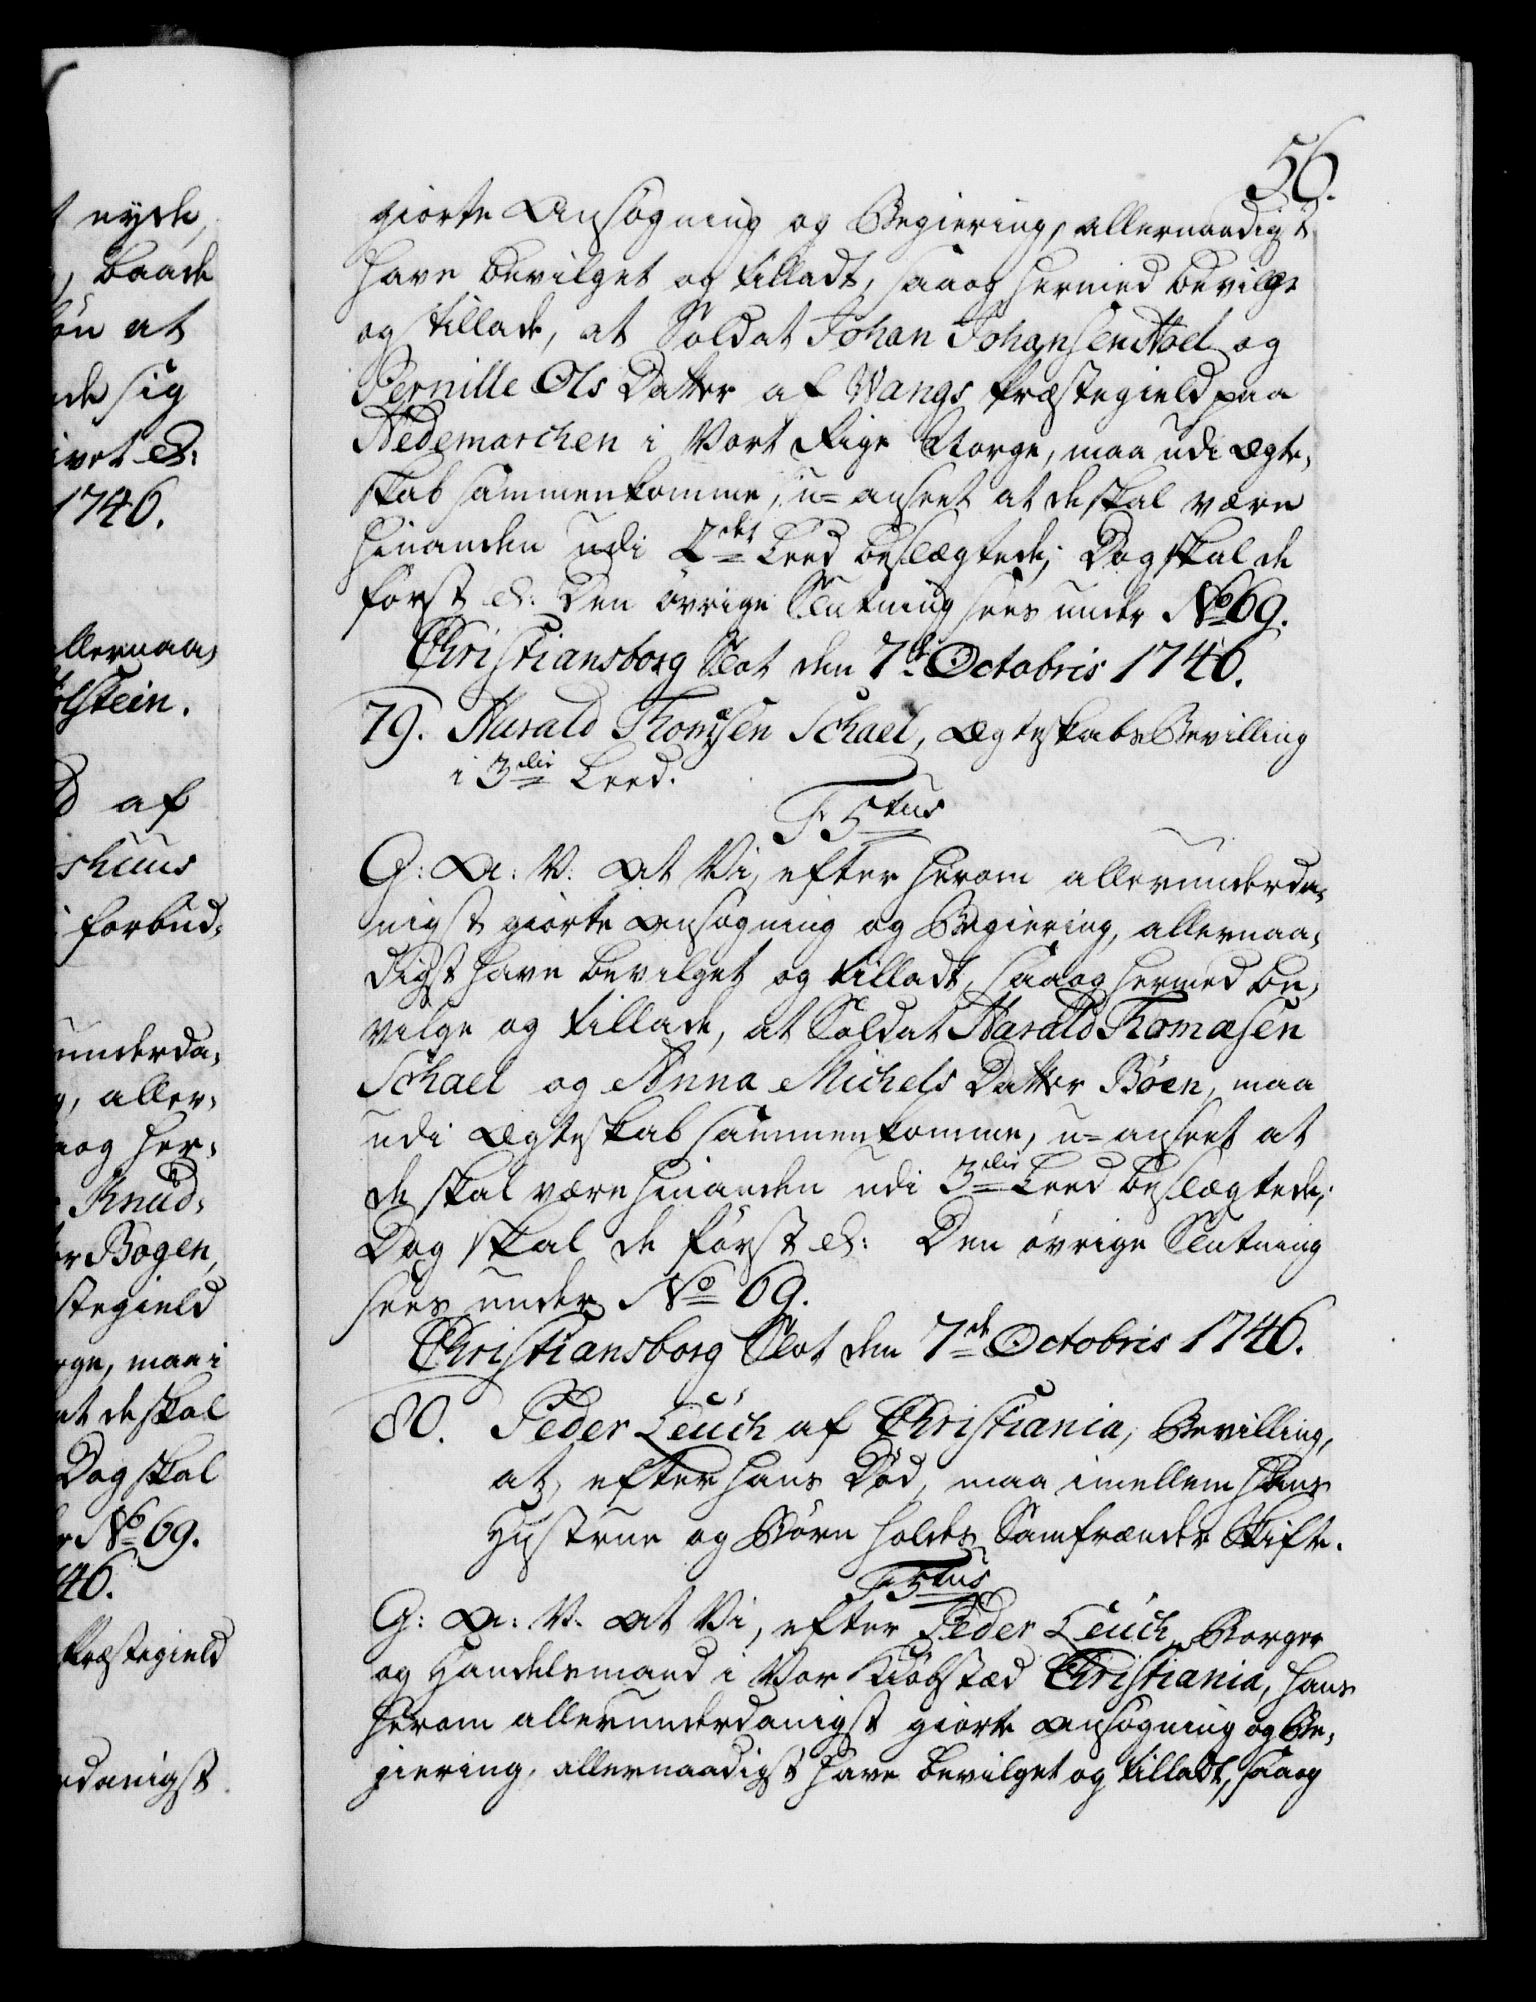 t nyde,
, baade
ön at
de sig
ivet &:
1746.
llernaa,
lstein.
D af
shuus
forbud,
underda,
g, aller,
aog her,
Knud,
er Bogen,
stegield
rge, maa i
at de skal
Dog skal
r No 69.
46.
Præstegield
rdanigst
56.
giorte Ansøgning og Begiering, allernaadigst
have bevilget og tilladt, saa og hermed bevilge
og tillade, at Soldat Johan Johansen Hoel og
Pernille Ols Datter af Wangs Præstegield paa
Hedemarchen i Vort Rige Norge, maa udi Ægte,
skab sammenkomme, u-anseet at de skal være
hinanden udi 2det Leed beslægtede; Dog skal de
først &: Den øvrige Slutning sees under No 69.
Christiansborg Slot den 7de Octobris 1746.
79. Harald Thomæsen Schael, Ægteskabs Bevilling
i 3die Leed.
F 5tus
G: A: V: At Vi, efter herom allerunderda,
nigst giorte Ansøgning og Begiering, allernaa,
digst have bevilget og tilladt, saa og hermed be,
vilge og tillade, at Soldat Harald Thomæsen
Schael og Anna Michels Datter Böen, maa
udi Ægteskab sammenkomme, u-anseet at
de skal være hinanden udi 3die Leed beslægtede;
Dog skal de først &: Den øvrige Slutning
sees under No 69.
Christiansborg Slot den 7de Octobris 1746.
80. Peder Leuch af Christiania, Bevilling,
at, efter hans Död, maa imellem hans
Hustrue og Börn holdes Samfrænder Skifte.
F 5tus
G: A: V: At Vi, efter Peder Leuch, Borger
og Handelsmand i Vor Kiöbstæd Christiania, hans
herom allerunderdanigst giorte Ansøgning og Be,
giering, allernaadigst have bevilget og tilladt, saa og